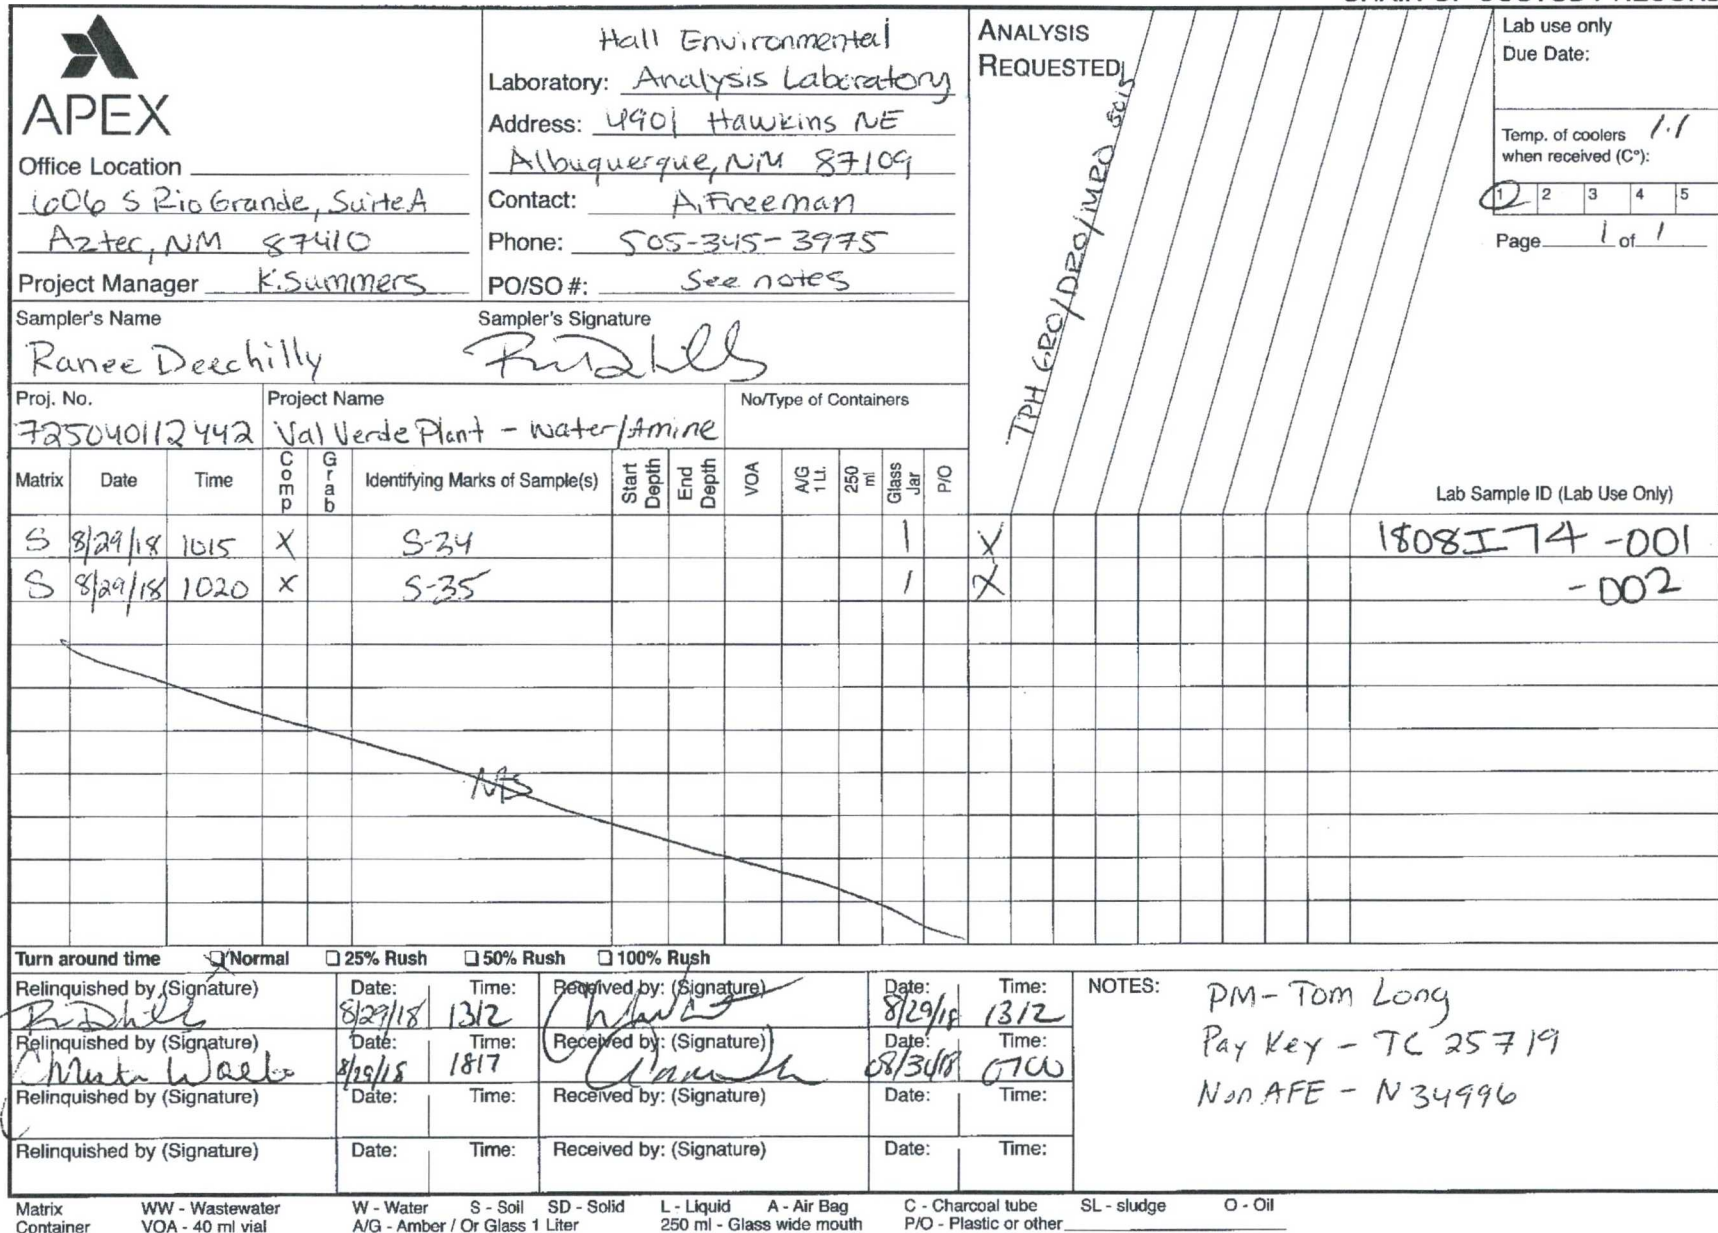 APEX
Office Location
606 S Rio Grande, Suite A
Aztec, NM 87410
Project Manager K. Summers
Hall Environmental
Laboratory: Analysis Laboratory
Address: 4901 Hawkins NE
Albuquerque, NM 87109
Contact: A. Freeman
Phone: 505-345-3975
PO/SO #: See notes
ANALYSIS
REQUESTED
TPH GRO/DRO/MRO 8015
Lab use only
Due Date:
Temp. of coolers 1.1
when received (C°):
1 2 3 4 5
Page 1 of 1
Sampler's Name
Ranee Deechilly
Sampler's Signature
Proj. No.
725040112442
Project Name
Val Verde Plant - Water/Amine
No/Type of Containers
Matrix Date Time Comp Grab Identifying Marks of Sample(s) Start Depth End Depth VOA A/G 1 Lt. 250 ml Glass Jar P/O
Lab Sample ID (Lab Use Only)
S 8/29/18 1015 X S-34 1 X 1808I74 -001
S 8/29/18 1020 X S-35 1 X -002
Turn around time Normal 25% Rush 50% Rush 100% Rush
Relinquished by (Signature) Date: 8/29/18 Time: 1312 Received by: (Signature) Date: 8/29/18 Time: 1312
Relinquished by (Signature) Date: 8/29/18 Time: 1817 Received by: (Signature) Date: Time:
Relinquished by (Signature) Date: Time: Received by: (Signature) Date: Time:
Relinquished by (Signature) Date: Time: Received by: (Signature) Date: Time:
NOTES: PM- Tom Long
Pay Key - TC 25719
Non AFE - N 34996
Matrix WW - Wastewater W - Water S - Soil SD - Solid L - Liquid A - Air Bag C - Charcoal tube SL - sludge O - Oil
Container VOA - 40 ml vial A/G - Amber / Or Glass 1 Liter 250 ml - Glass wide mouth P/O - Plastic or other